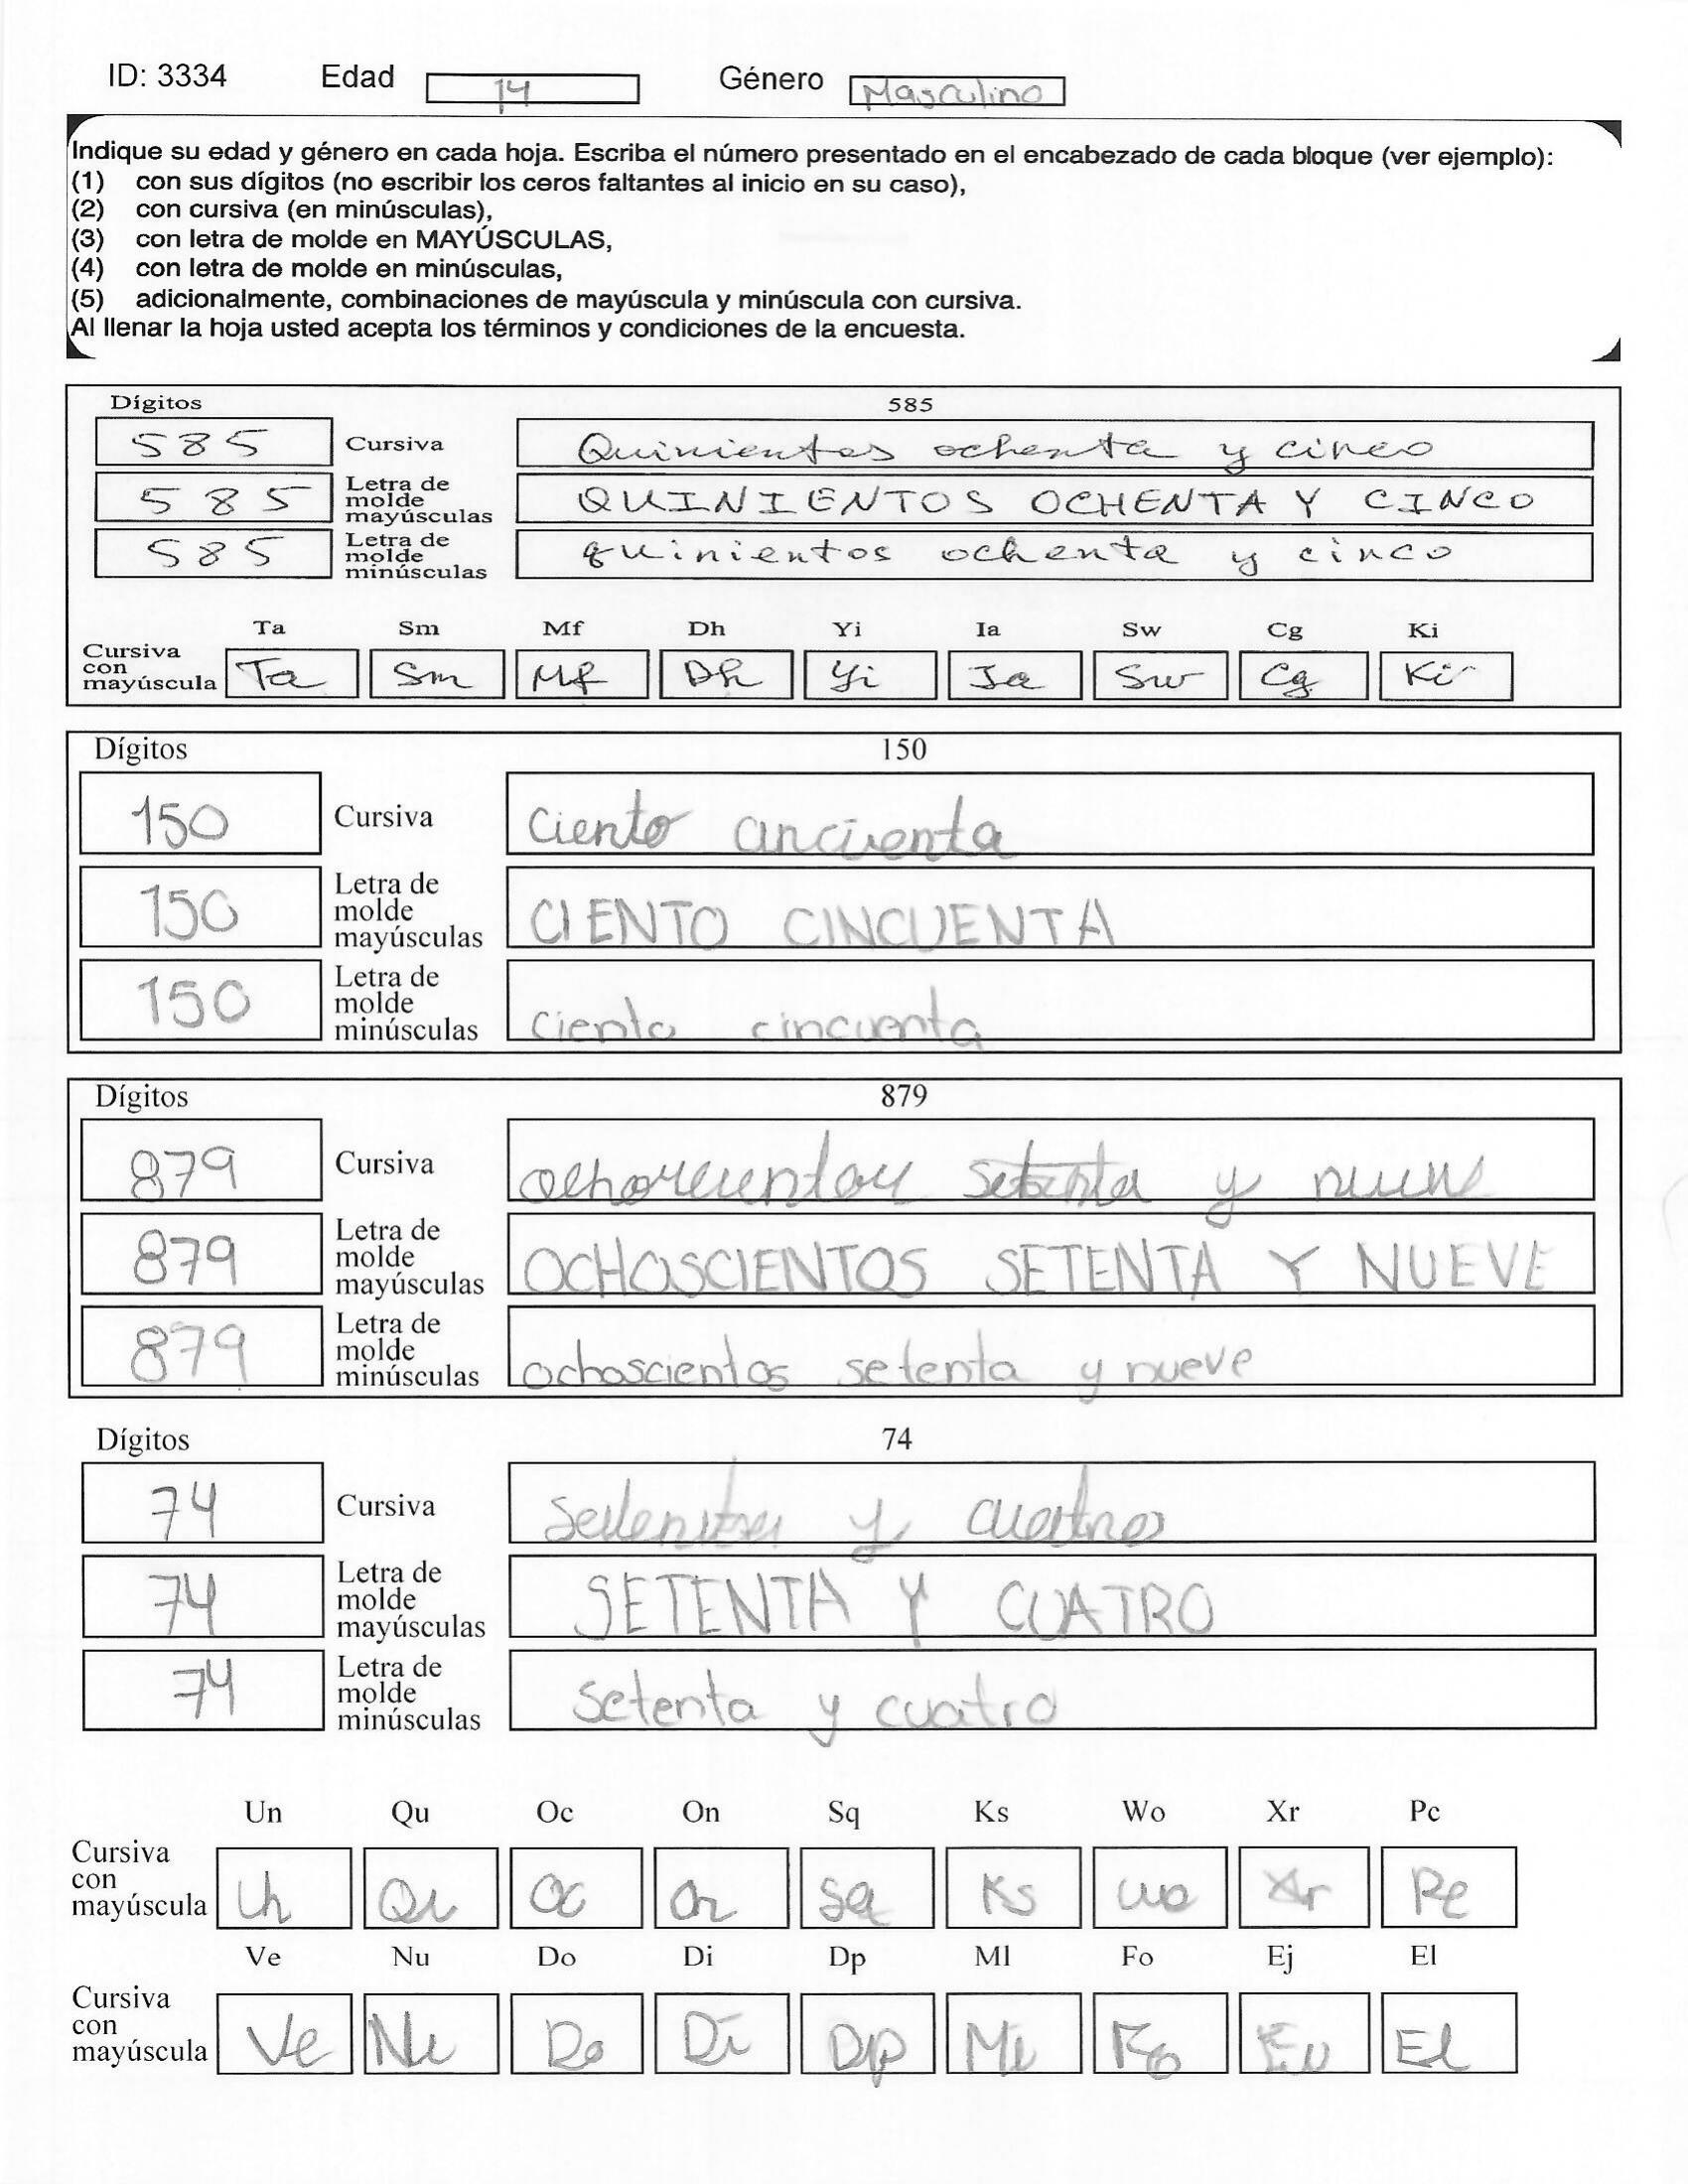 ID: 3334 Edad 14 Género Masculino
Indique su edad y género en cada hoja. Escriba el número presentado en el encabezado de cada bloque (ver ejemplo):
(1) con sus dígitos (no escribir los ceros faltantes al inicio en su caso),
(2) con cursiva (en minúsculas),
(3) con letra de molde en MAYÚSCULAS,
(4) con letra de molde en minúsculas,
(5) adicionalmente, combinaciones de mayúscula y minúscula con cursiva.
Al llenar la hoja usted acepta los términos y condiciones de la encuesta.
Dígitos 585
585 Cursiva Quinientos ochenta y cinco
585 Letra de molde mayúsculas QUINIENTOS OCHENTA Y CINCO
585 Letra de molde minúsculas quinientos ochenta y cinco
Ta Sm Mf Dh Yi Ia Sw Cg Ki
Cursiva con mayúscula Ta Sm Mf Dh Yi Ia Sw Cg Ki
Dígitos 150
150 Cursiva ciento cincuenta
150 Letra de molde mayúsculas CIENTO CINCUENTA
150 Letra de molde minúsculas ciento cincuenta
Dígitos 879
879 Cursiva setenta y
879 Letra de molde mayúsculas OCHOSCIENTOS SETENTA Y NUEVE
879 Letra de molde minúsculas ochoscientos setenta y nueve
Dígitos 74
74 Cursiva setenta y cuatro
74 Letra de molde mayúsculas SETENTA Y CUATRO
74 Letra de molde minúsculas setenta y cuatro
Un Qu Oc On Sq Ks Wo Xr Pc
Cursiva con mayúscula Un Qu Oc On Sq Ks Wo Xr Pc
Ve Nu Do Di Dp Ml Fo Ej El
Cursiva con mayúscula Ve Nu Do Di Dp Ml Fo El